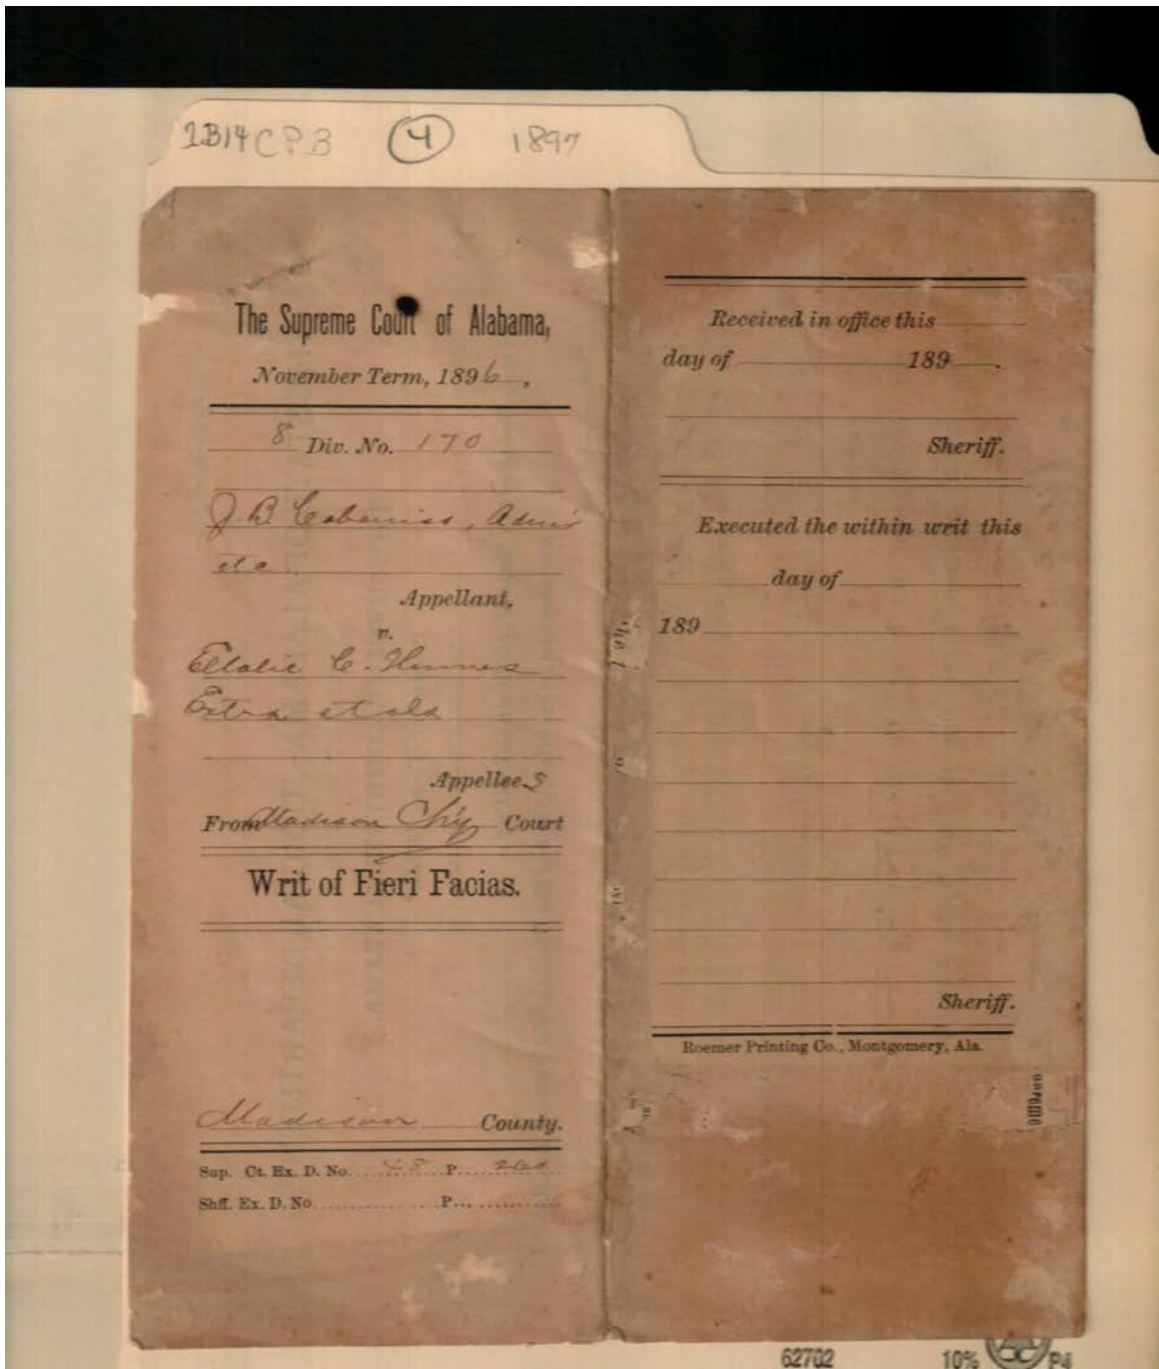 2B14 CPB 4 1897
The Supreme Court of Alabama,
November Term, 1896,
8 Div. No. 170
J. B. Cabaniss, Admr
etc.
Appellant,
v.
C. Himes
Extrx et als
Appellees
From Madison Ch'y Court
Writ of Fieri Facias.
Madison County.
Sup. Ct. Ex. D. No. 48 P. 260
Shff. Ex. D. No. P.
Received in office this
day of 189 .
Sheriff.
Executed the within writ this
day of
189
Sheriff.
Roemer Printing Co., Montgomery, Ala.
62702 10% P4